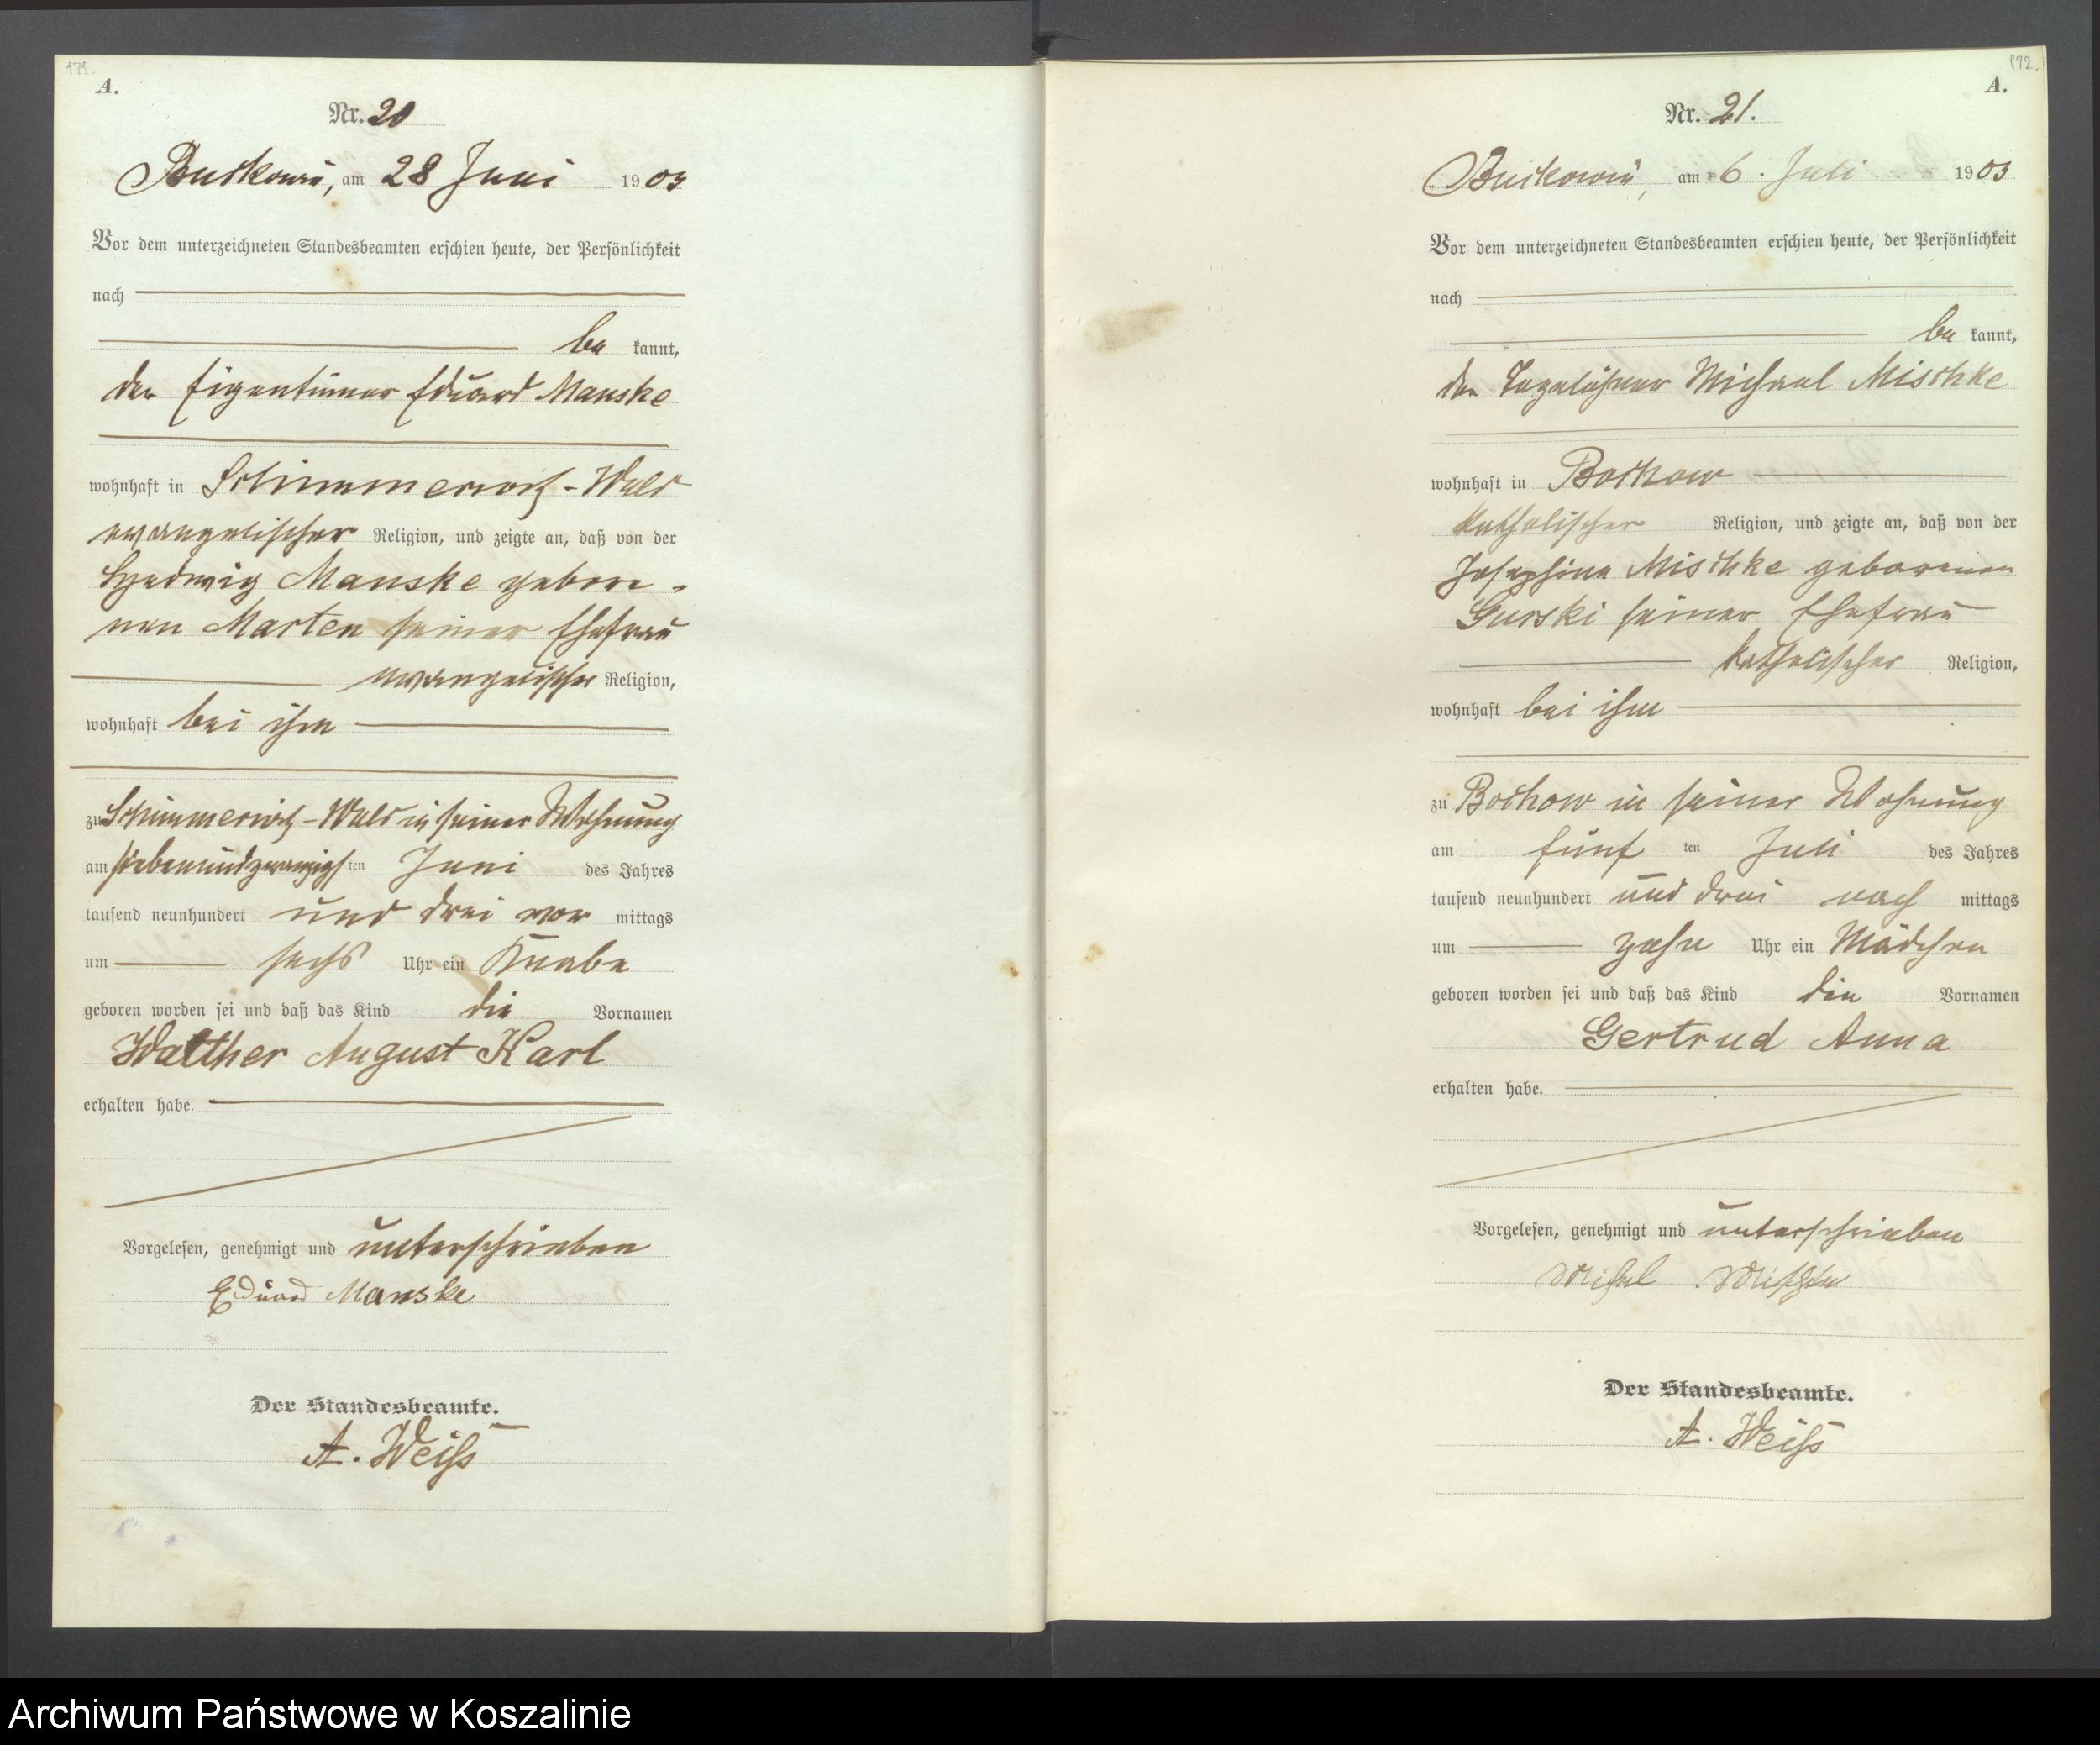 171.
A.
Nr. 20
Buckowin, am 28 Juni 1903
Vor dem unterzeichneten Standesbeamten erschien heute, der Persönlichkeit
nach
be kannt,
der Eigentümer Eduard Manske
wohnhaft in Schimmerwitz-Wald
evangelischer Religion, und zeigte an, daß von der
Hedwig Manske gebore-
nen Marten seiner Ehefrau
evangelischer Religion,
wohnhaft bei ihm
zu Schimmerwitz-Wald in seiner Wohnung
am siebenundzwanzigsten Juni des Jahres
tausend neunhundert und drei vor mittags
um sechs Uhr ein Knabe
geboren worden sei und daß das Kind die Vornamen
Walther August Karl
erhalten habe.
Vorgelesen, genehmigt und unterschrieben
Eduard Manske
Der Standesbeamte.
A. Weiß
172.
A.
Nr. 21.
Buckowin, am 6. Juli 1903
Vor dem unterzeichneten Standesbeamten erschien heute, der Persönlichkeit
nach
be kannt,
der Tagelöhner Michael Mischke
wohnhaft in Bochow
katholischer Religion, und zeigte an, daß von der
Josephine Mischke geborenen
Gurski seiner Ehefrau
katholischer Religion,
wohnhaft bei ihm
zu Bochow in seiner Wohnung
am fünf ten Juli des Jahres
tausend neunhundert und drei nach mittags
um zehn Uhr ein Mädchen
geboren worden sei und daß das Kind die Vornamen
Gertrud Anna
erhalten habe.
Vorgelesen, genehmigt und unterschrieben
Michal Mischke
Der Standesbeamte.
A. Weiß
Archiwum Państwowe w Koszalinie